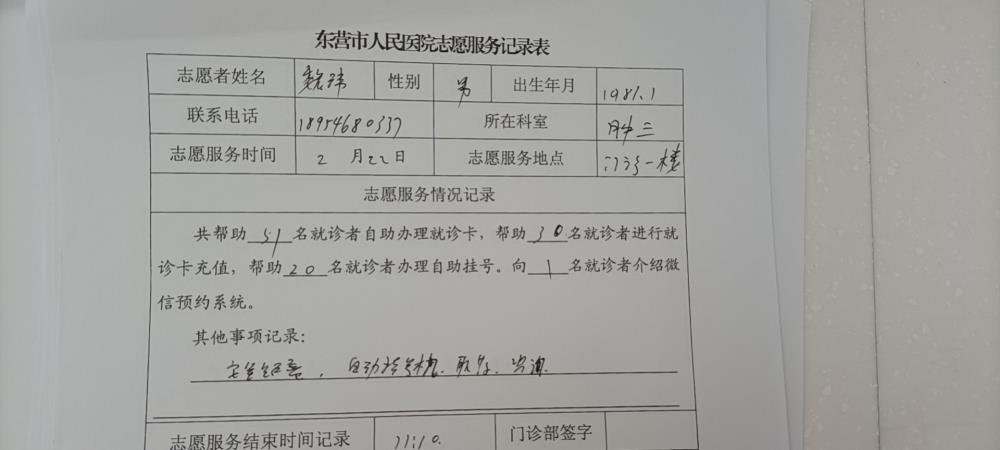 东营市人民医院志愿服务记录表
志愿者姓名 魏玮 性别 男 出生年月 1981.1
联系电话 18954680337 所在科室 肿三
志愿服务时间 2月22日 志愿服务地点 门诊一楼
志愿服务情况记录
共帮助51名就诊者自助办理就诊卡，帮助30名就诊者进行就
诊卡充值，帮助20名就诊者办理自助挂号。向1名就诊者介绍微
信预约系统。
其他事项记录：
自动挂号机. 取号. 咨询.
志愿服务结束时间记录 11:10. 门诊部签字